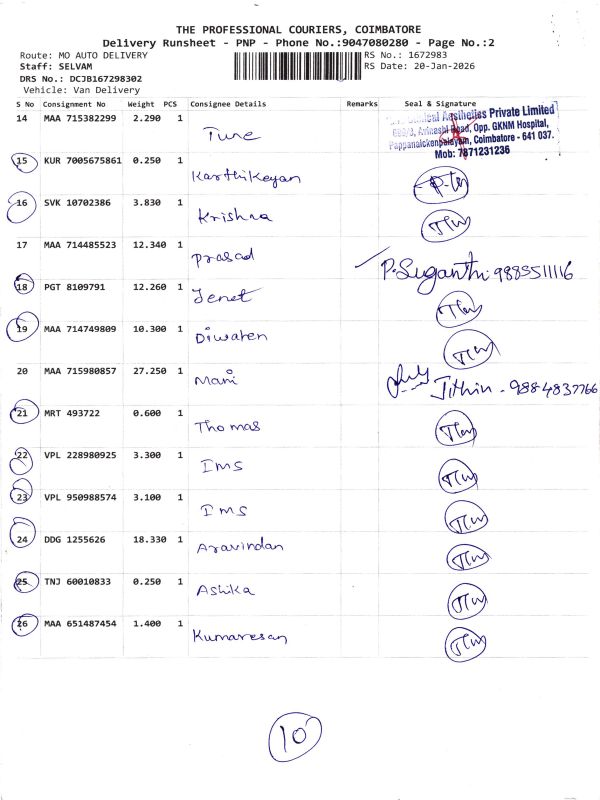 THE PROFESSIONAL COURIERS, COIMBATORE
Delivery Runsheet - PNP - Phone No.:9047080280 - Page No.:2
Route: MO AUTO DELIVERY RS No.: 1672983
Staff: SELVAM RS Date: 20-Jan-2026
DRS No.: DCJB167298302
Vehicle: Van Delivery
S No Consignment No Weight PCS Consignee Details Remarks Seal & Signature
14 MAA 715382299 2.290 1 Tune
Aesthetics Private Limited
Avinashi Road, Opp. GKNM Hospital,
Pappanaickenpalayam, Coimbatore - 641 037.
Mob: 7871231236
15 KUR 7005675861 0.250 1 Karthikeyan
16 SVK 10702386 3.830 1 Krishna
17 MAA 714485523 12.340 1 Prasad P. Suganthi 9885511116
18 PGT 8109791 12.260 1 Jenet
19 MAA 714749809 10.300 1 Diwaren
20 MAA 715980857 27.250 1 Mani Jithin - 9884837766
21 MRT 493722 0.600 1 Thomas
22 VPL 228980925 3.300 1 Ims
23 VPL 950988574 3.100 1 Ims
24 DDG 1255626 18.330 1 Aravindan
25 TNJ 60010833 0.250 1 Ashika
26 MAA 651487454 1.400 1 Kumaresan
10